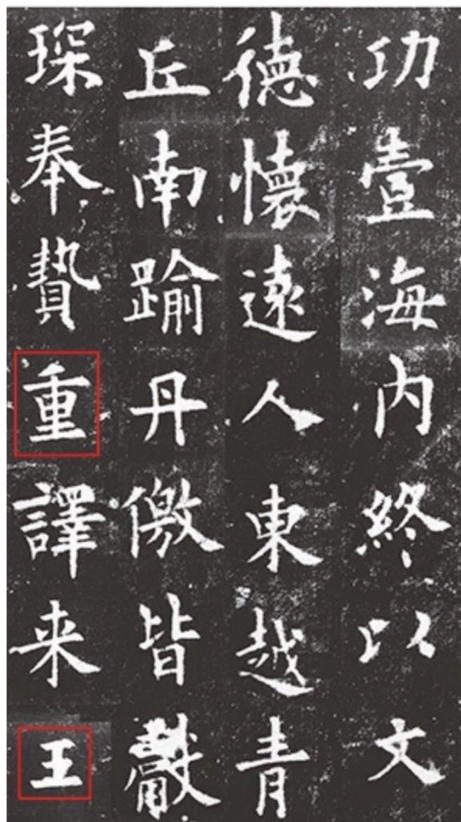 功壹海内終以文
德懷遠人東越青
丘南踰丹徼皆獻
琛奉贄重譯来王